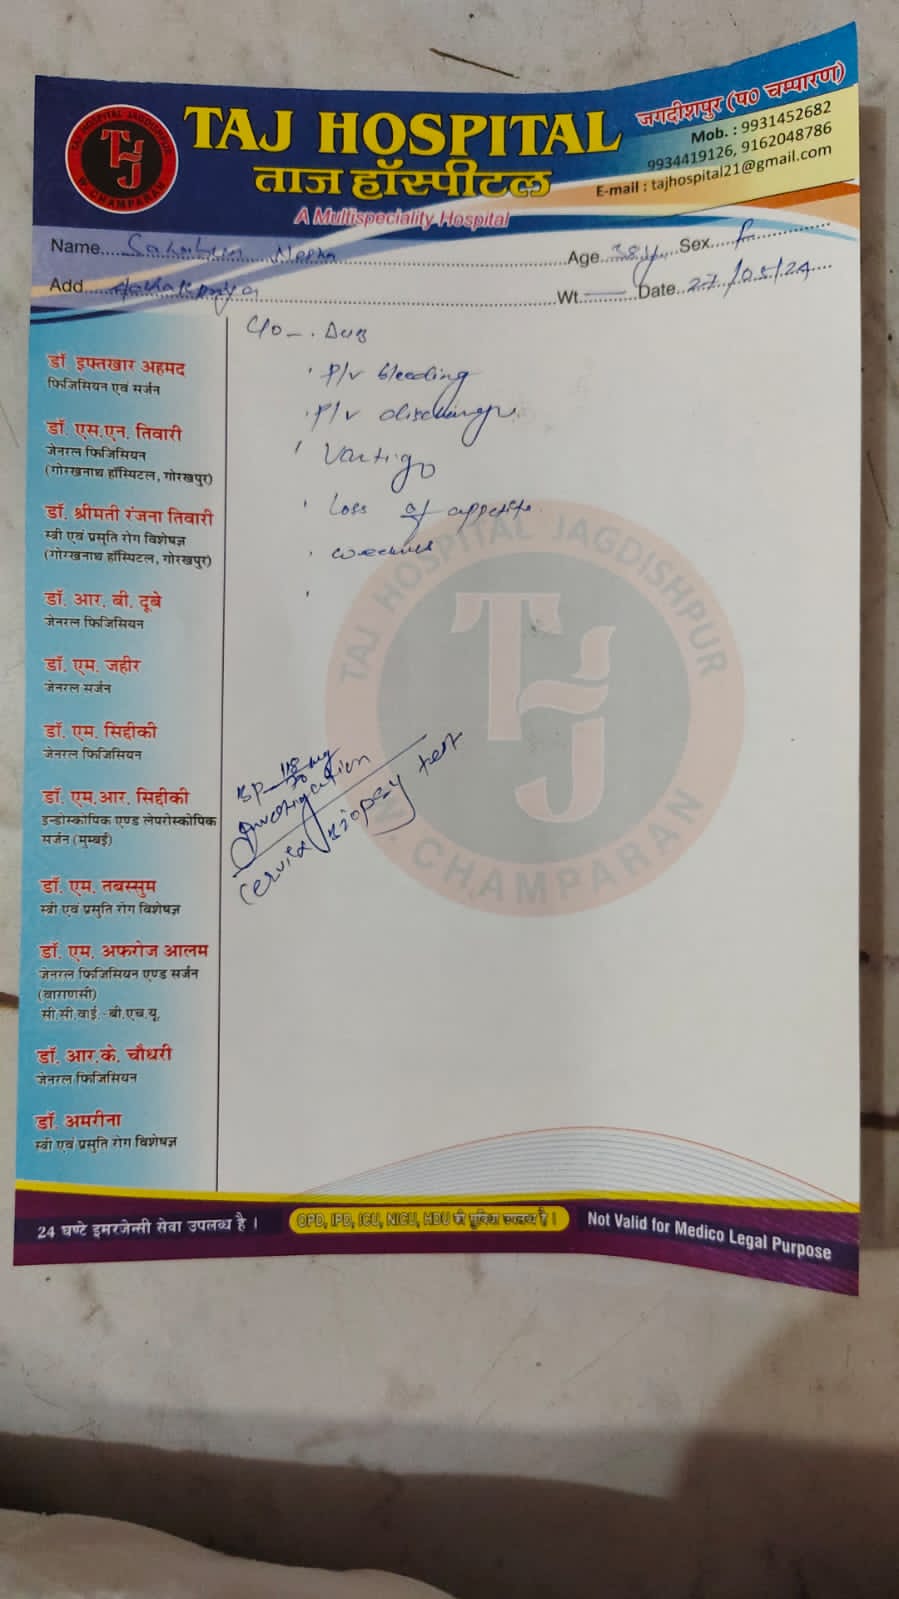 TAJ HOSPITAL JAGDISHPUR
W. CHAMPARAN
TJ
TAJ HOSPITAL
ताज हॉस्पीटल
A Multispeciality Hospital
जगदीशपुर (प० चम्पारण)
Mob. : 9931452682
9934419126, 9162048786
E-mail : tajhospital21@gmail.com
Name
Age 38y Sex F
Add
Wt — Date 27/05/24
C/o -. DUB
P/v bleeding
P/v discharge
Vertigo
Loss of appetite
weakness
BP - 118/70 mg
Investigation
Cervix Biopsy test
डॉ इफ्तखार अहमद
फिजिसियन एवं सर्जन
डॉ. एस.एन. तिवारी
जेनरल फिजिसियन
(गोरखनाथ हॉस्पिटल, गोरखपुर)
डॉ. श्रीमती रंजना तिवारी
स्त्री एवं प्रसूति रोग विशेषज्ञ
(गोरखनाथ हॉस्पिटल, गोरखपुर)
डॉ. आर. बी. दूबे
जेनरल फिजिसियन
डॉ. एम. जहीर
जेनरल सर्जन
डॉ. एम. सिद्दीकी
जेनरल फिजिसियन
डॉ. एम.आर. सिद्दीकी
इन्डोस्कोपिक एण्ड लेपरोस्कोपिक
सर्जन (मुम्बई)
डॉ. एम. तबस्सुम
स्त्री एवं प्रसुति रोग विशेषज्ञ
डॉ. एम. अफरोज आलम
जेनरल फिजिसियन एण्ड सर्जन
(वाराणसी)
सी.सी.वाई.-बी.एच.यू.
डॉ. आर.के. चौधरी
जेनरल फिजिसियन
डॉ. अमरीना
स्त्री एवं प्रसुति रोग विशेषज्ञ
TAJ HOSPITAL JAGDISHPUR
TJ
W. CHAMPARAN
24 घण्टे इमरजेन्सी सेवा उपलब्ध है।
OPD, IPD, ICU, NICU, HDU की सुविधा उपलब्ध है।
Not Valid for Medico Legal Purpose